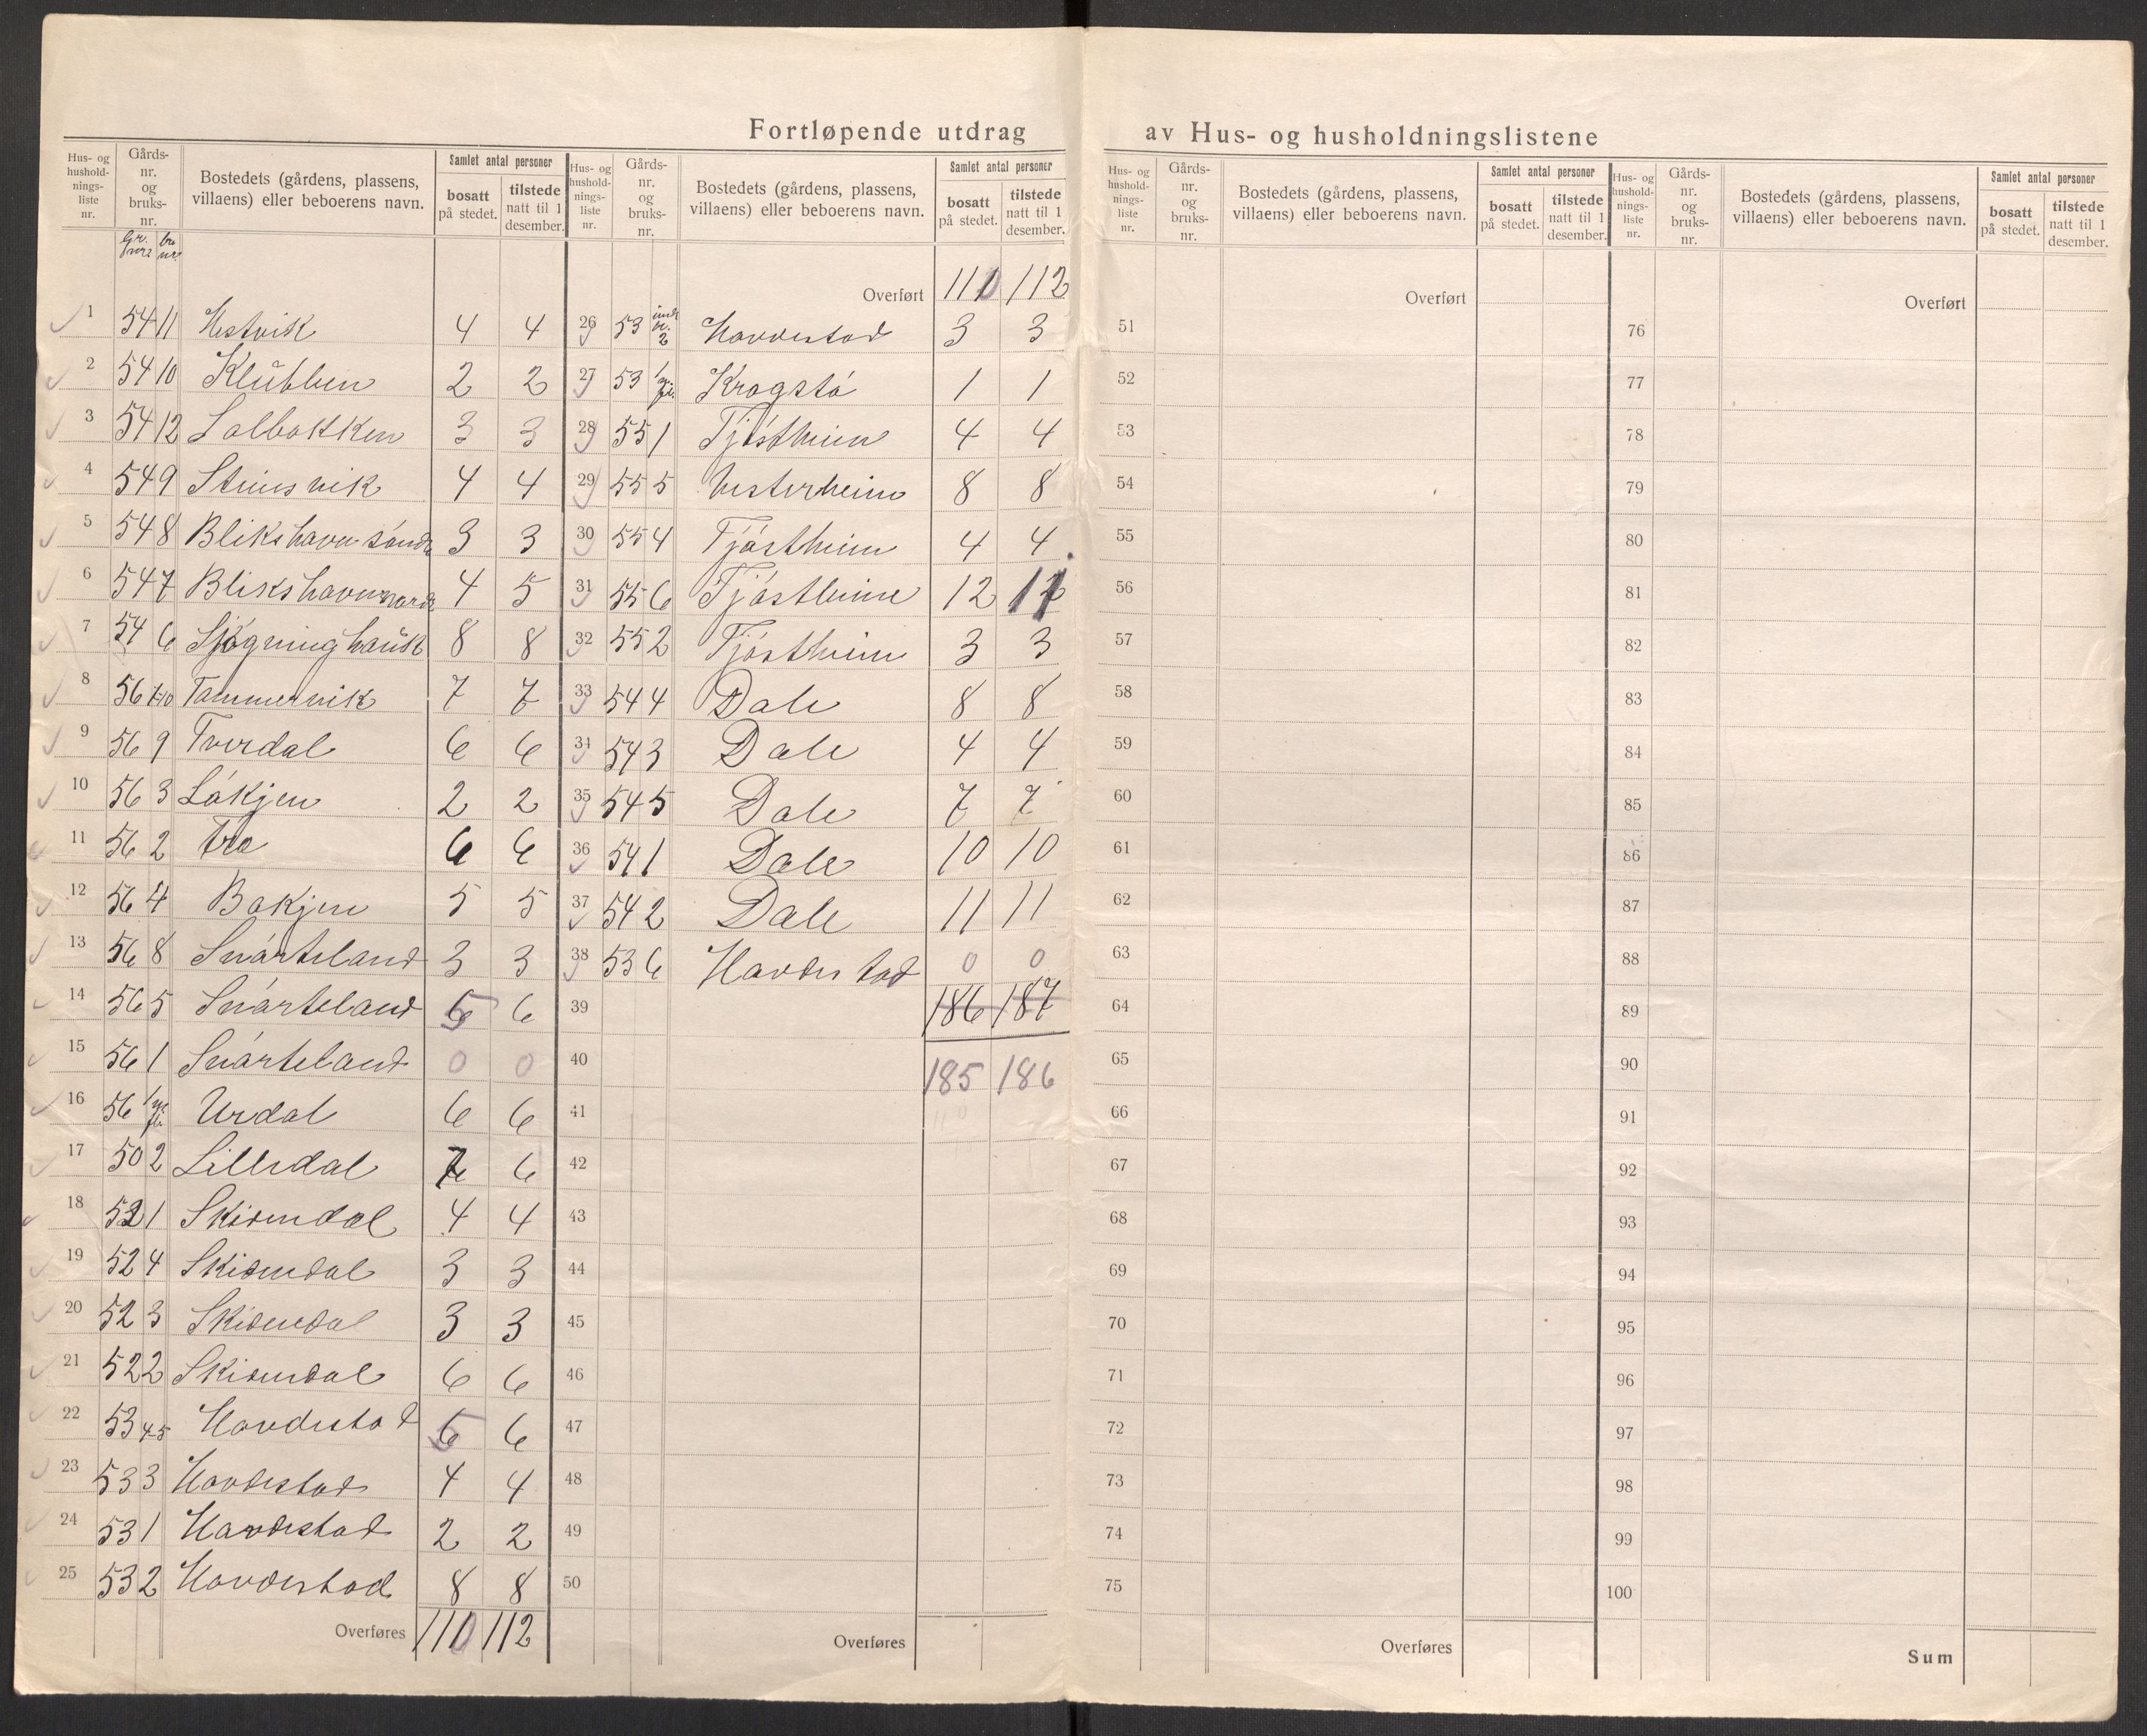 Fortløpende utdrag av Hus- og husholdningslistene
Hus- og husholdnings-liste nr. Gårds-nr. og bruks-nr. Bostedets (gårdens, plassens, villaens) eller beboerens navn. Samlet antal personer bosatt på stedet. tilstede natt til 1 desember.
1 54 11 Hestvik 4 4
2 54 10 Klubben 2 2
3 54 12 Solbakken 3 3
4 54 9 Steinsvik 4 4
5 54 8 Blikshavn søndr 3 3
6 54 7 Blikshavn nordr 4 5
7 54 6 8 8
8 56 7-10 Tammervik 7 7
9 56 9 Tverdal 6 6
10 56 3 Løkjen 2 2
11 56 2 Tra 6 6
12 56 4 Bakjen 5 5
13 56 8 Snårteland 3 3
14 56 5 Snårteland 5 6
15 56 1 Snårteland 0 0
16 56 1 m fl. Urdal 6 6
17 50 2 Lilledal 7 6
18 52 1 Skisendal 4 4
19 52 4 Skisendal 3 3
20 52 3 Skisendal 3 3
21 52 2 Skisendal 6 6
22 53 4-5 Havdestad 5 6
23 53 3 Havdestad 4 4
24 53 1 Havdestad 2 2
25 53 2 Havdestad 8 8
Overføres 110 112
Hus- og husholdnings-liste nr. Gårds-nr. og bruks-nr. Bostedets (gårdens, plassens, villaens) eller beboerens navn. Samlet antal personer bosatt på stedet. tilstede natt til 1 desember.
Overført 110 112
26 53 und br. 2 Havdestad 3 3
27 53 1 m fl. Kragstå 1 1
28 55 1 Tjøstheim 4 4
29 55 5 Vesterheim 8 8
30 55 4 Tjøstheim 4 4
31 55 6 Tjøstheim 12 11
32 55 2 Tjøstheim 3 3
33 54 4 Dale 8 8
34 54 3 Dale 4 4
35 54 5 Dale 7 7
36 54 1 Dale 10 10
37 54 2 Dale 11 11
38 53 6 Havdestad 0 0
39 186 187
40 185 186
41
42
43
44
45
46
47
48
49
50
Overføres
Hus- og husholdnings-liste nr. Gårds-nr. og bruks-nr. Bostedets (gårdens, plassens, villaens) eller beboerens navn. Samlet antal personer bosatt på stedet. tilstede natt til 1 desember.
Overført
51
52
53
54
55
56
57
58
59
60
61
62
63
64
65
66
67
68
69
70
71
72
73
74
75
Overføres
Hus- og husholdnings-liste nr. Gårds-nr. og bruks-nr. Bostedets (gårdens, plassens, villaens) eller beboerens navn. Samlet antal personer bosatt på stedet. tilstede natt til 1 desember.
Overført
76
77
78
79
80
81
82
83
84
85
86
87
88
89
90
91
92
93
94
95
96
97
98
99
100
Sum